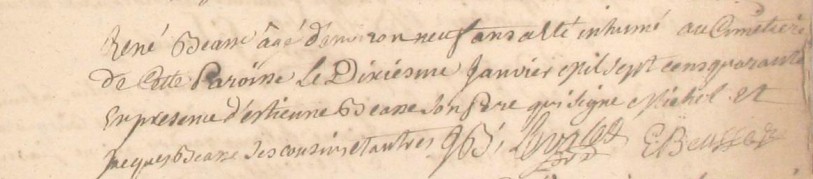 René Beasse âgé d'environ neuf ans a été inhumé au Cimetiere
de Cette Paroisse Le Dixiesme Janvier mil sept cens quarante
En presence d'estienne Beasse son Pere qui signe Michel et
Jacques Beasse ses cousins et autres